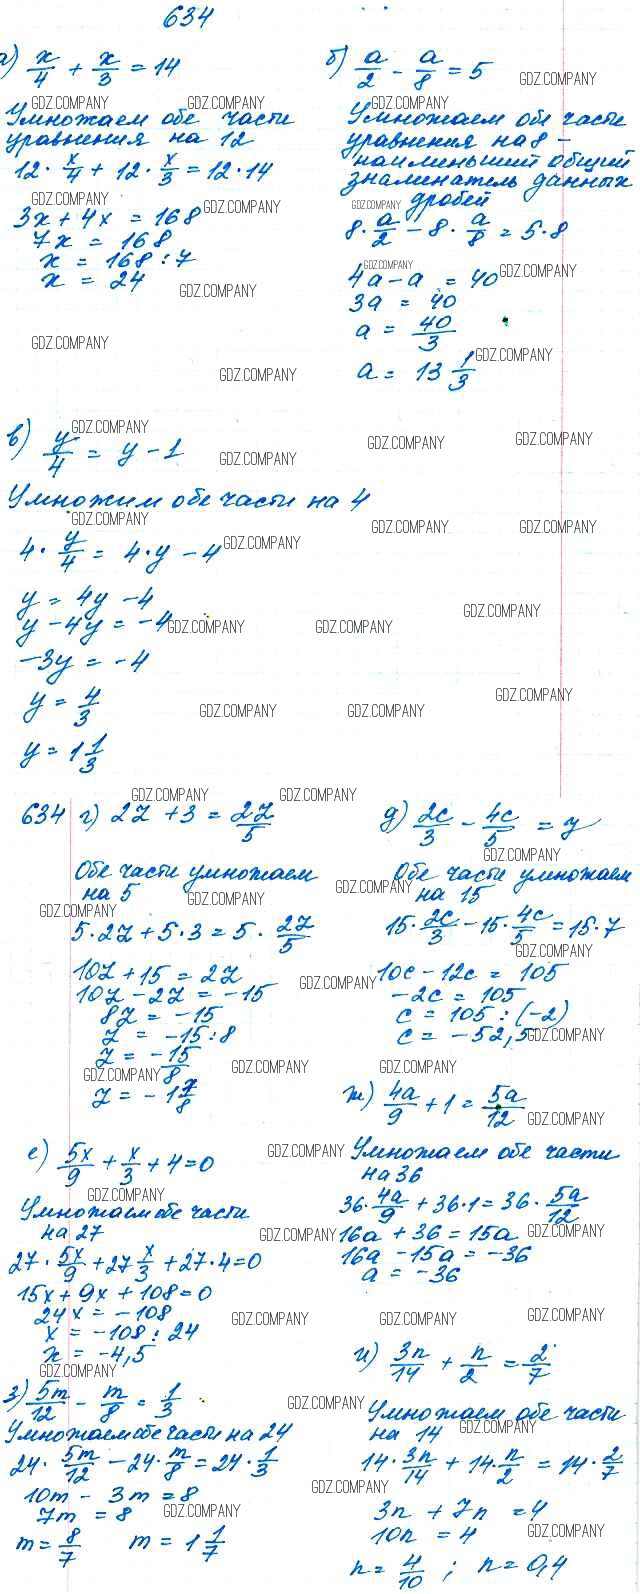 634
а) x/4 + x/3 = 14
Умножаем обе части
уравнения на 12
12 · x/4 + 12 · x/3 = 12 · 14
3x + 4x = 168
7x = 168
x = 168 : 7
x = 24
б) a/2 - a/8 = 5
Умножаем обе части
уравнения на 8 -
наименьший общий
знаменатель данных
дробей
8 · a/2 - 8 · a/8 = 5 · 8
4a - a = 40
3a = 40
a = 40/3
a = 13 1/3
в) y/4 = y - 1
Умножим обе части на 4
4 · y/4 = 4 · y - 4
y = 4y - 4
y - 4y = -4
-3y = -4
y = 4/3
y = 1 1/3
634 г) 2z + 3 = 2z/5
Обе части умножаем
на 5
5 · 2z + 5 · 3 = 5 · 2z/5
10z + 15 = 2z
10z - 2z = -15
8z = -15
z = -15 : 8
z = -15/8
z = -1 7/8
д) 2c/3 - 4c/5 = y
Обе части умножаем
на 15
15 · 2c/3 - 15 · 4c/5 = 15 · 7
10c - 12c = 105
-2c = 105
c = 105 : (-2)
c = -52,5
е) 5x/9 + x/3 + 4 = 0
Умножаем обе части
на 27
27 · 5x/9 + 27 x/3 + 27 · 4 = 0
15x + 9x + 108 = 0
24x = -108
x = -108 : 24
x = -4,5
ж) 4a/9 + 1 = 5a/12
Умножаем обе части
на 36
36 · 4a/9 + 36 · 1 = 36 · 5a/12
16a + 36 = 15a
16a - 15a = -36
a = -36
з) 5m/12 - m/8 = 1/3
Умножаем обе части на 24
24 · 5m/12 - 24 · m/8 = 24 · 1/3
10m - 3m = 8
7m = 8
m = 8/7 m = 1 1/7
и) 3n/14 + n/2 = 2/7
Умножаем обе части
на 14
14 · 3n/14 + 14 · n/2 = 14 · 2/7
3n + 7n = 4
10n = 4
n = 4/10 ; n = 0,4
GDZ.COMPANY